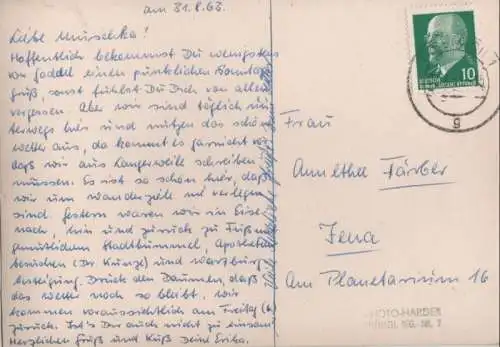 am 31.8.63.
Liebe Murschka!
Hoffentlich bekommst Du wenigstens
von Jaddel einen pünktlichen Sonntags
gruß, sonst fühlst Du Dich von allen
vergessen. Aber wir sind täglich un
terwegs hier und nutzen das schöne
Wetter aus, da kommt es garnicht vor,
daß wir aus Langerweile schreiben
müssen. Es ist so schön hier, daß
wir um Wanderziele nie verlegen
sind. Gestern waren wir in Eise
nach, hin und zurück zu Fuß mit
gemütlichem Stadtbummel, Apotheken
besuchen (Dr. Kunze) und Wartburg
besteigung. Drück den Daumen, daß
das Wetter noch so bleibt. Wir
kommen voraussichtlich am Freitag (6.)
zurück. Ist's Dir auch nicht zu einsam?
Herzlichen Gruß und Kuß Deine Erika.
Viele
10
DEUTSCHE
g
Frau
Annelhea Färber
Jena
Am Planetarium 16
PHOTO-HARDER